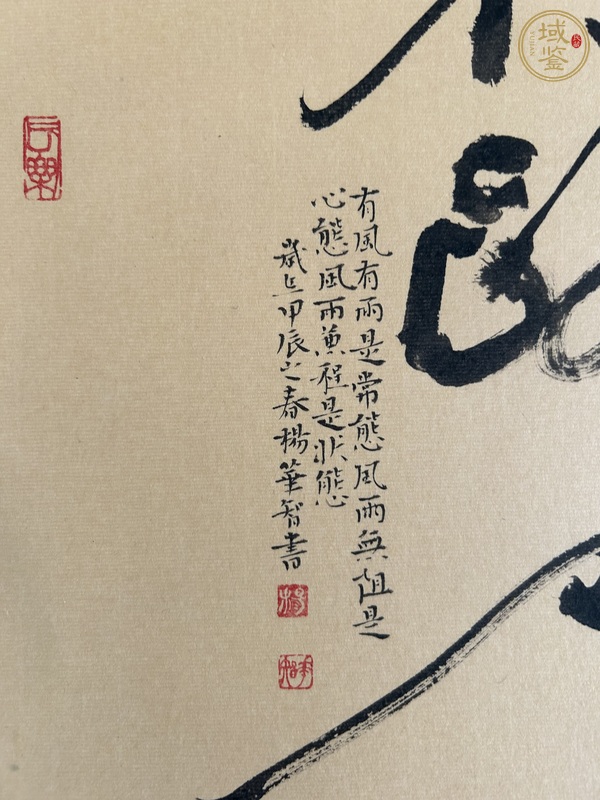 有風有雨是常態風雨無阻是
心態風雨兼程是狀態
歲在甲辰之春楊華智書
楊
域鑒
YUJIAN